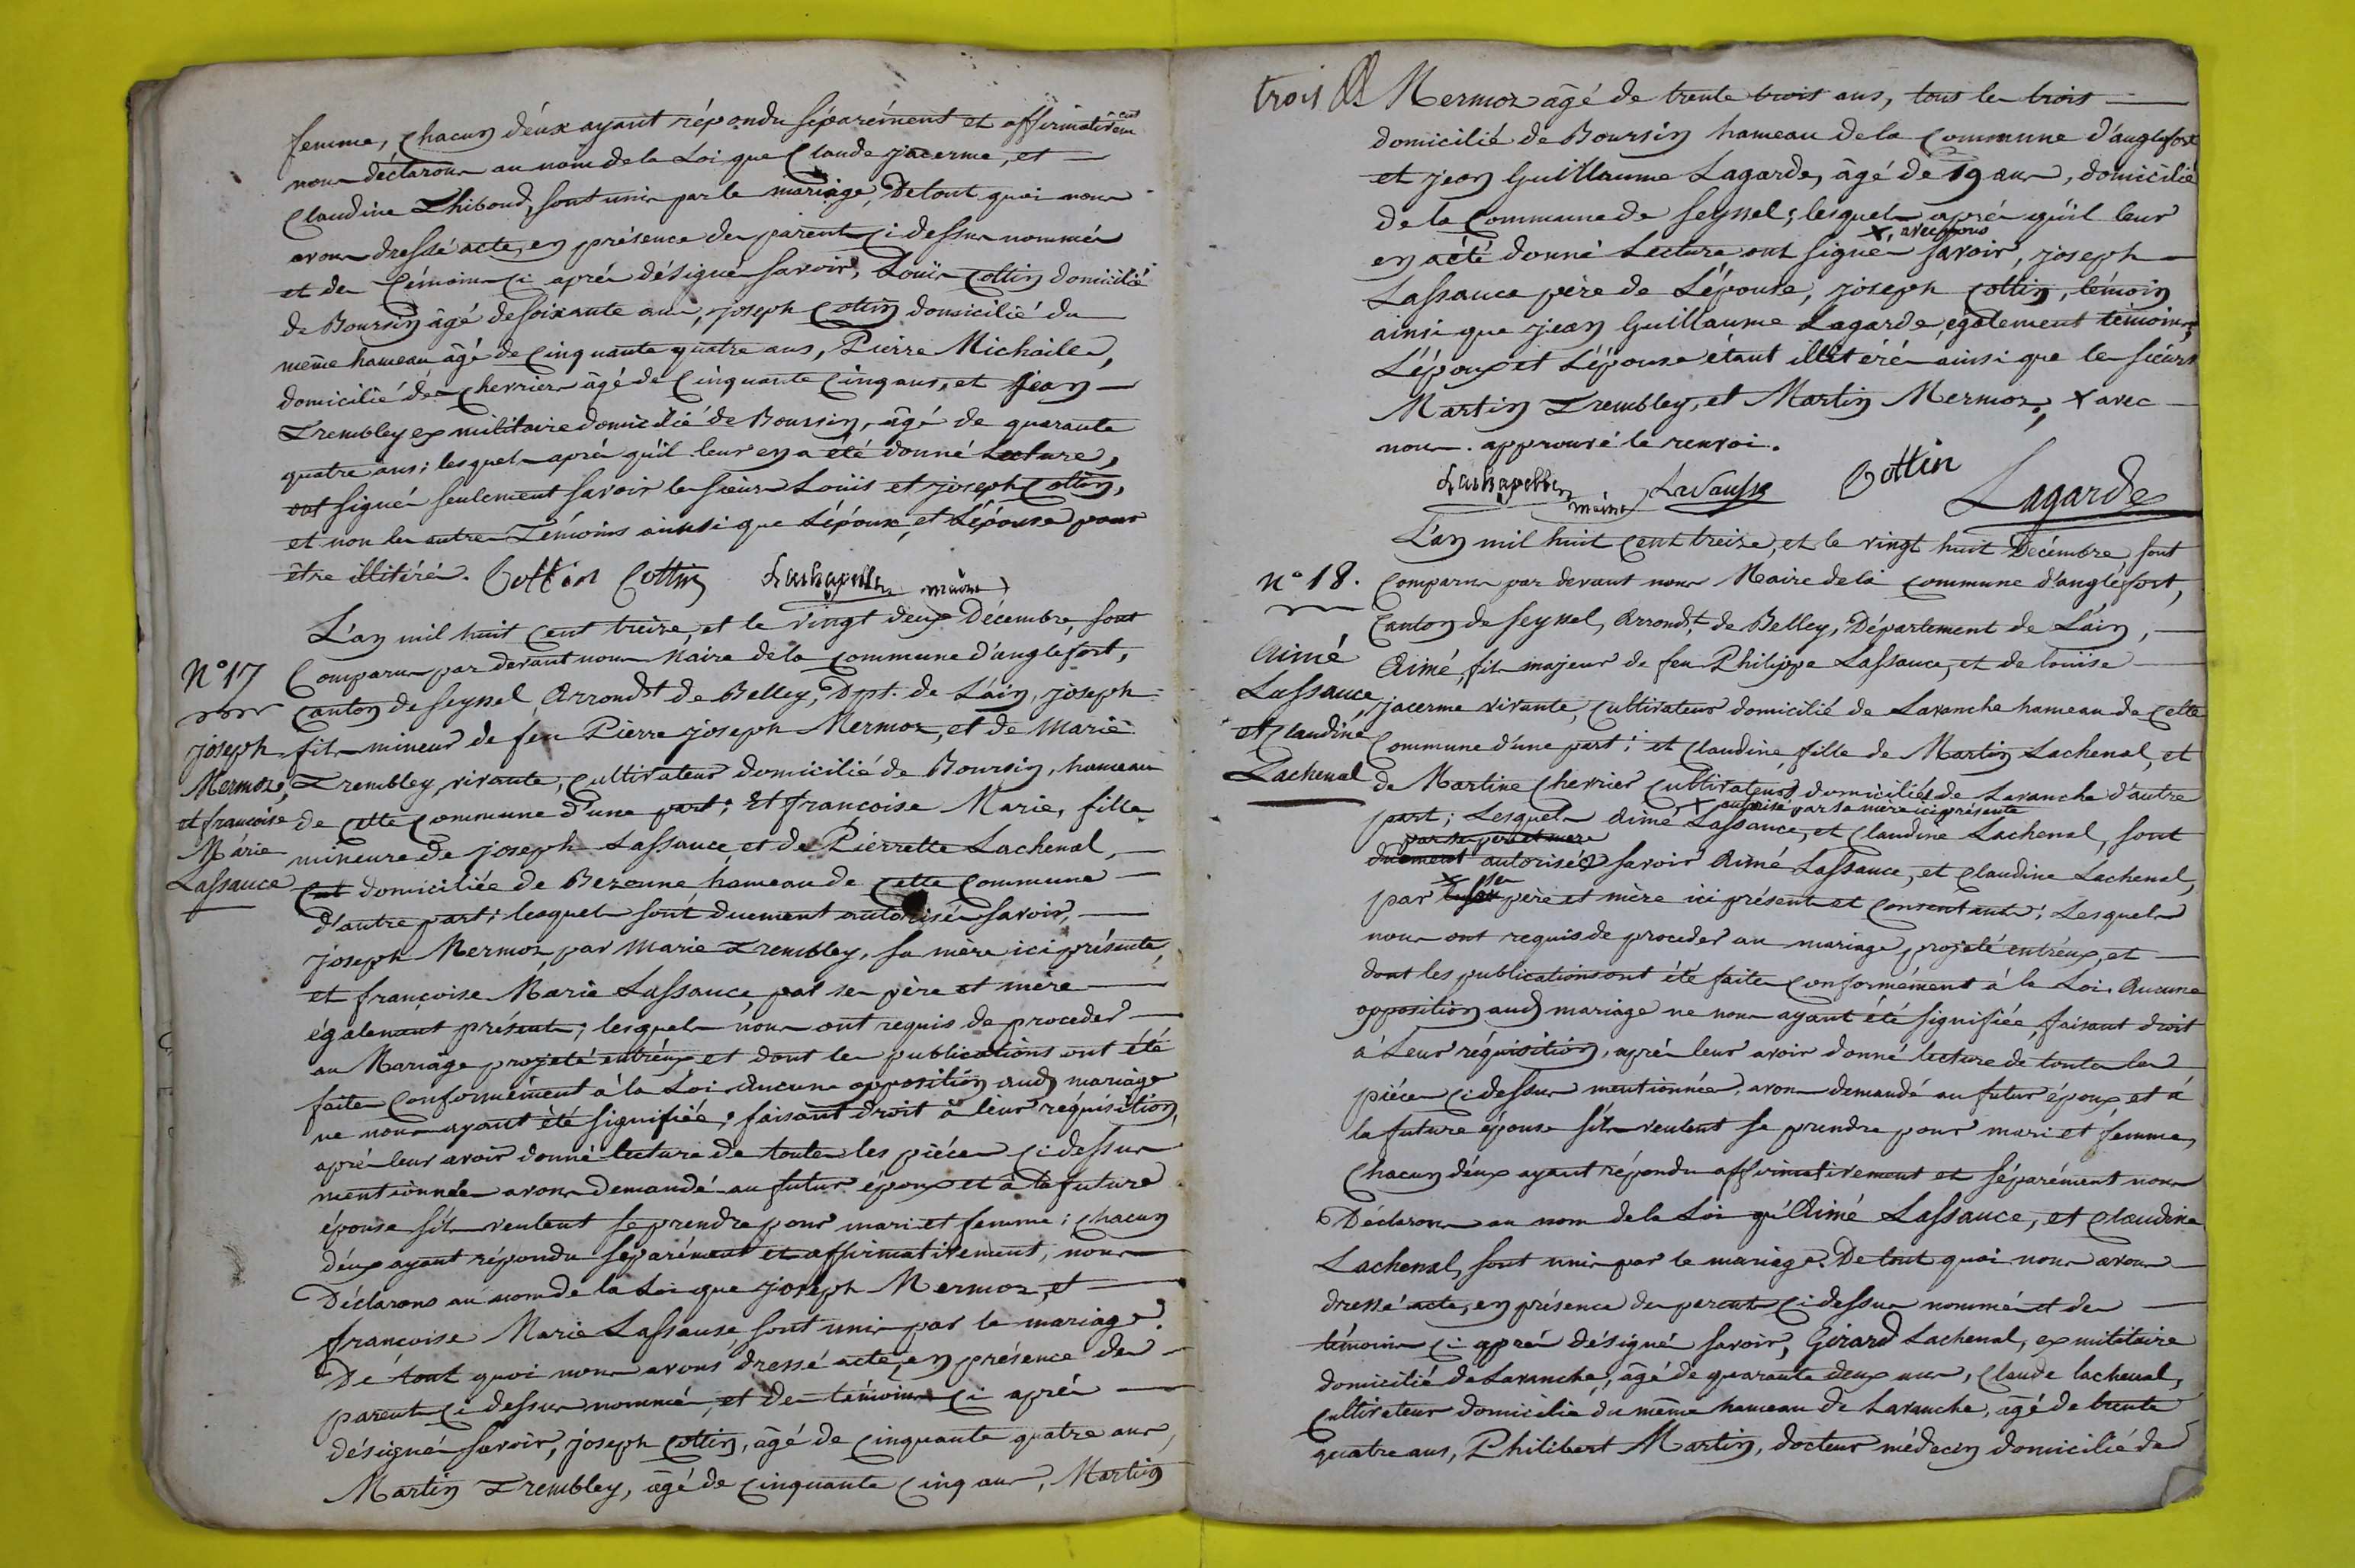 femme, chacun d'éux ayant répondu séparément et affirmativement
nous déclarons au nom de la Loi que Claude jacerme, et
Claudine Thiboud, sont unis par le mariage, De tout quoi nous
avons dressé acte, en présence des parents ci dessus nommés
et des témoins ci après désignés Savoir, Louis Cottin domicilié
de Boursin âgé de soixante ans, joseph Cottin domicilié du
même hameau âgé de cinquante quatre ans, Pierre Michaille,
domicilié des cherriers âgé de cinquante cinq ans, et jean
Trembley ex militaire domicilié de Boursin, âgé de quarante
quatre ans; lesquels après qu'il leur en a été donné Lecture,
ont signé seulement savoir les sieurs Louis et joseph Cottin,
et non les autres Témoins ainsi que L'époux, et L'épouse pour
être illitérés. Cottin Cottin maire
L'an mil huit cent treize, et le vingt deux Décembre, sont
N° 17 Comparus par devant nous Maire de la commune d'anglefort,
canton de seyssel Arrondt de Belley, Dpt. de L'ain, joseph
joseph fils mineur de feu Pierre joseph Mermoz, et de Marie
Mermoz, Trembley, vivante, cultivateur domicilié de Boursin, hameau
et francoise de cette commune d'une part; Et françoise Marie, fille
Marie mineure de joseph Lassauce, et de Pierrette Lachenal,
Lassauce domiciliée de Bezonne, hameau de cette commune
d'autre part; lesquels sont duement autorisés savoir,
joseph Mermoz par Marie Trembley, sa mère ici présente,
et françoise Marie Lassauce, par ses père et mère
également présents; lesquels nous ont requis de proceder
au Mariage projeté entréux et dont les publications ont été
faites conformément à la Loi Aucune opposition aud mariage
ne nous ayant été signifiée; faisant droit à leur réquisition,
après leur avoir donné lecture de toutes les pièces ci dessus
mentionnées avons demandé au futur époux et à la future
épouse s'ils veulent se prendre pour mari et femme; chacun
d'éux ayant répondu séparément et affirmativement, nous
Déclarons au nom de la Loi que joseph Mermoz, et
francoise Marie Lassause, sont unis par le mariage.
De tout quoi nous avons dressé acte, en présence des
parents ci dessus nommés, et des témoins ci après
désignés savoir, joseph Cottin, âgé de cinquante quatre ans,
Martin Trembley, âgé de cinquante cinq ans, Martin
trois Mermoz âgé de trente trois ans, tous les trois
domicilié de Boursin hameau de la commune d'anglefort
et jean Guillaume Lagarde, âgé de 19 ans, domicilié
de la Commune de seyssel; lesquels après qu'il leur
x, avec nous
en a été donné Lecture ont signés savoir, joseph
Lassauce père de L'épouse, joseph Cottin, témoin
ainsi que jean Guillaume Lagarde, également témoins;
L'époux et L'épouse étant illitérés ainsi que les sieurs
Martin Trembley, et Martin Mermoz, x avec
nous. approuvé le renvoi.
maire Lassausse Cottin Lagarde
L'an mil huit cent treize, et le vingt huit Décembre, sont
n° 18. Comparus par devant nous Maire de la commune d'anglefort,
canton de seyssel, Arrondt. de Belley, Département de L'ain,
Aimé Aimé, fils majeur de feu Philippe Lassauce, et de louise
Lassauce, jacerme vivante, cultivateur domicilié de Lavanche hameau de cette
et Claudine commune d'une part; et Claudine, fille de Martin Lachenal, et
Lachenal de Martine Cherrier cultivateurs domiciliés de Lavanche d'autre
x autorisé par sa mère ici présente
part; Lesquels Aimé Lassauce, et Claudine Lachenal, sont
par ses père et mere
duement autorisés savoir Aimé Lassauce, et Claudine Lachenal,
par x ses père et mère ici présents et consentants; Lesquels
nous ont requis de proceder au mariage projeté entréux, et
dont les publications ont été faites conformément à la Loi. Aucune
opposition aud mariage ne nous ayant été signifiée, faisant droit
à Leur réquisition, après leur avoir donné lecture de toutes les
pièces ci dessus mentionnées, avons demandé au futur époux, et à
la future épouse s'ils veulent se prendre pour mari et femme,
Chacun d'éux ayant répondu affirmativement et séparément nous
Déclarons au nom de la Loi qu'Aimé Lassauce, et Claudine
Lachenal, sont unis par le mariage. De tout quoi nous avons
dressé acte, en présence des parents ci dessus nommés et des
témoins ci après désignés savoir, Girard Lachenal, ex militaire
domicilié de Lavanche, âgé de quarante deux ans, Claude lachenal,
cultivateur domicilié du même hameau de Lavanche, âgé de trente
quatre ans, Philibert Martin, docteur médecin domicilié de